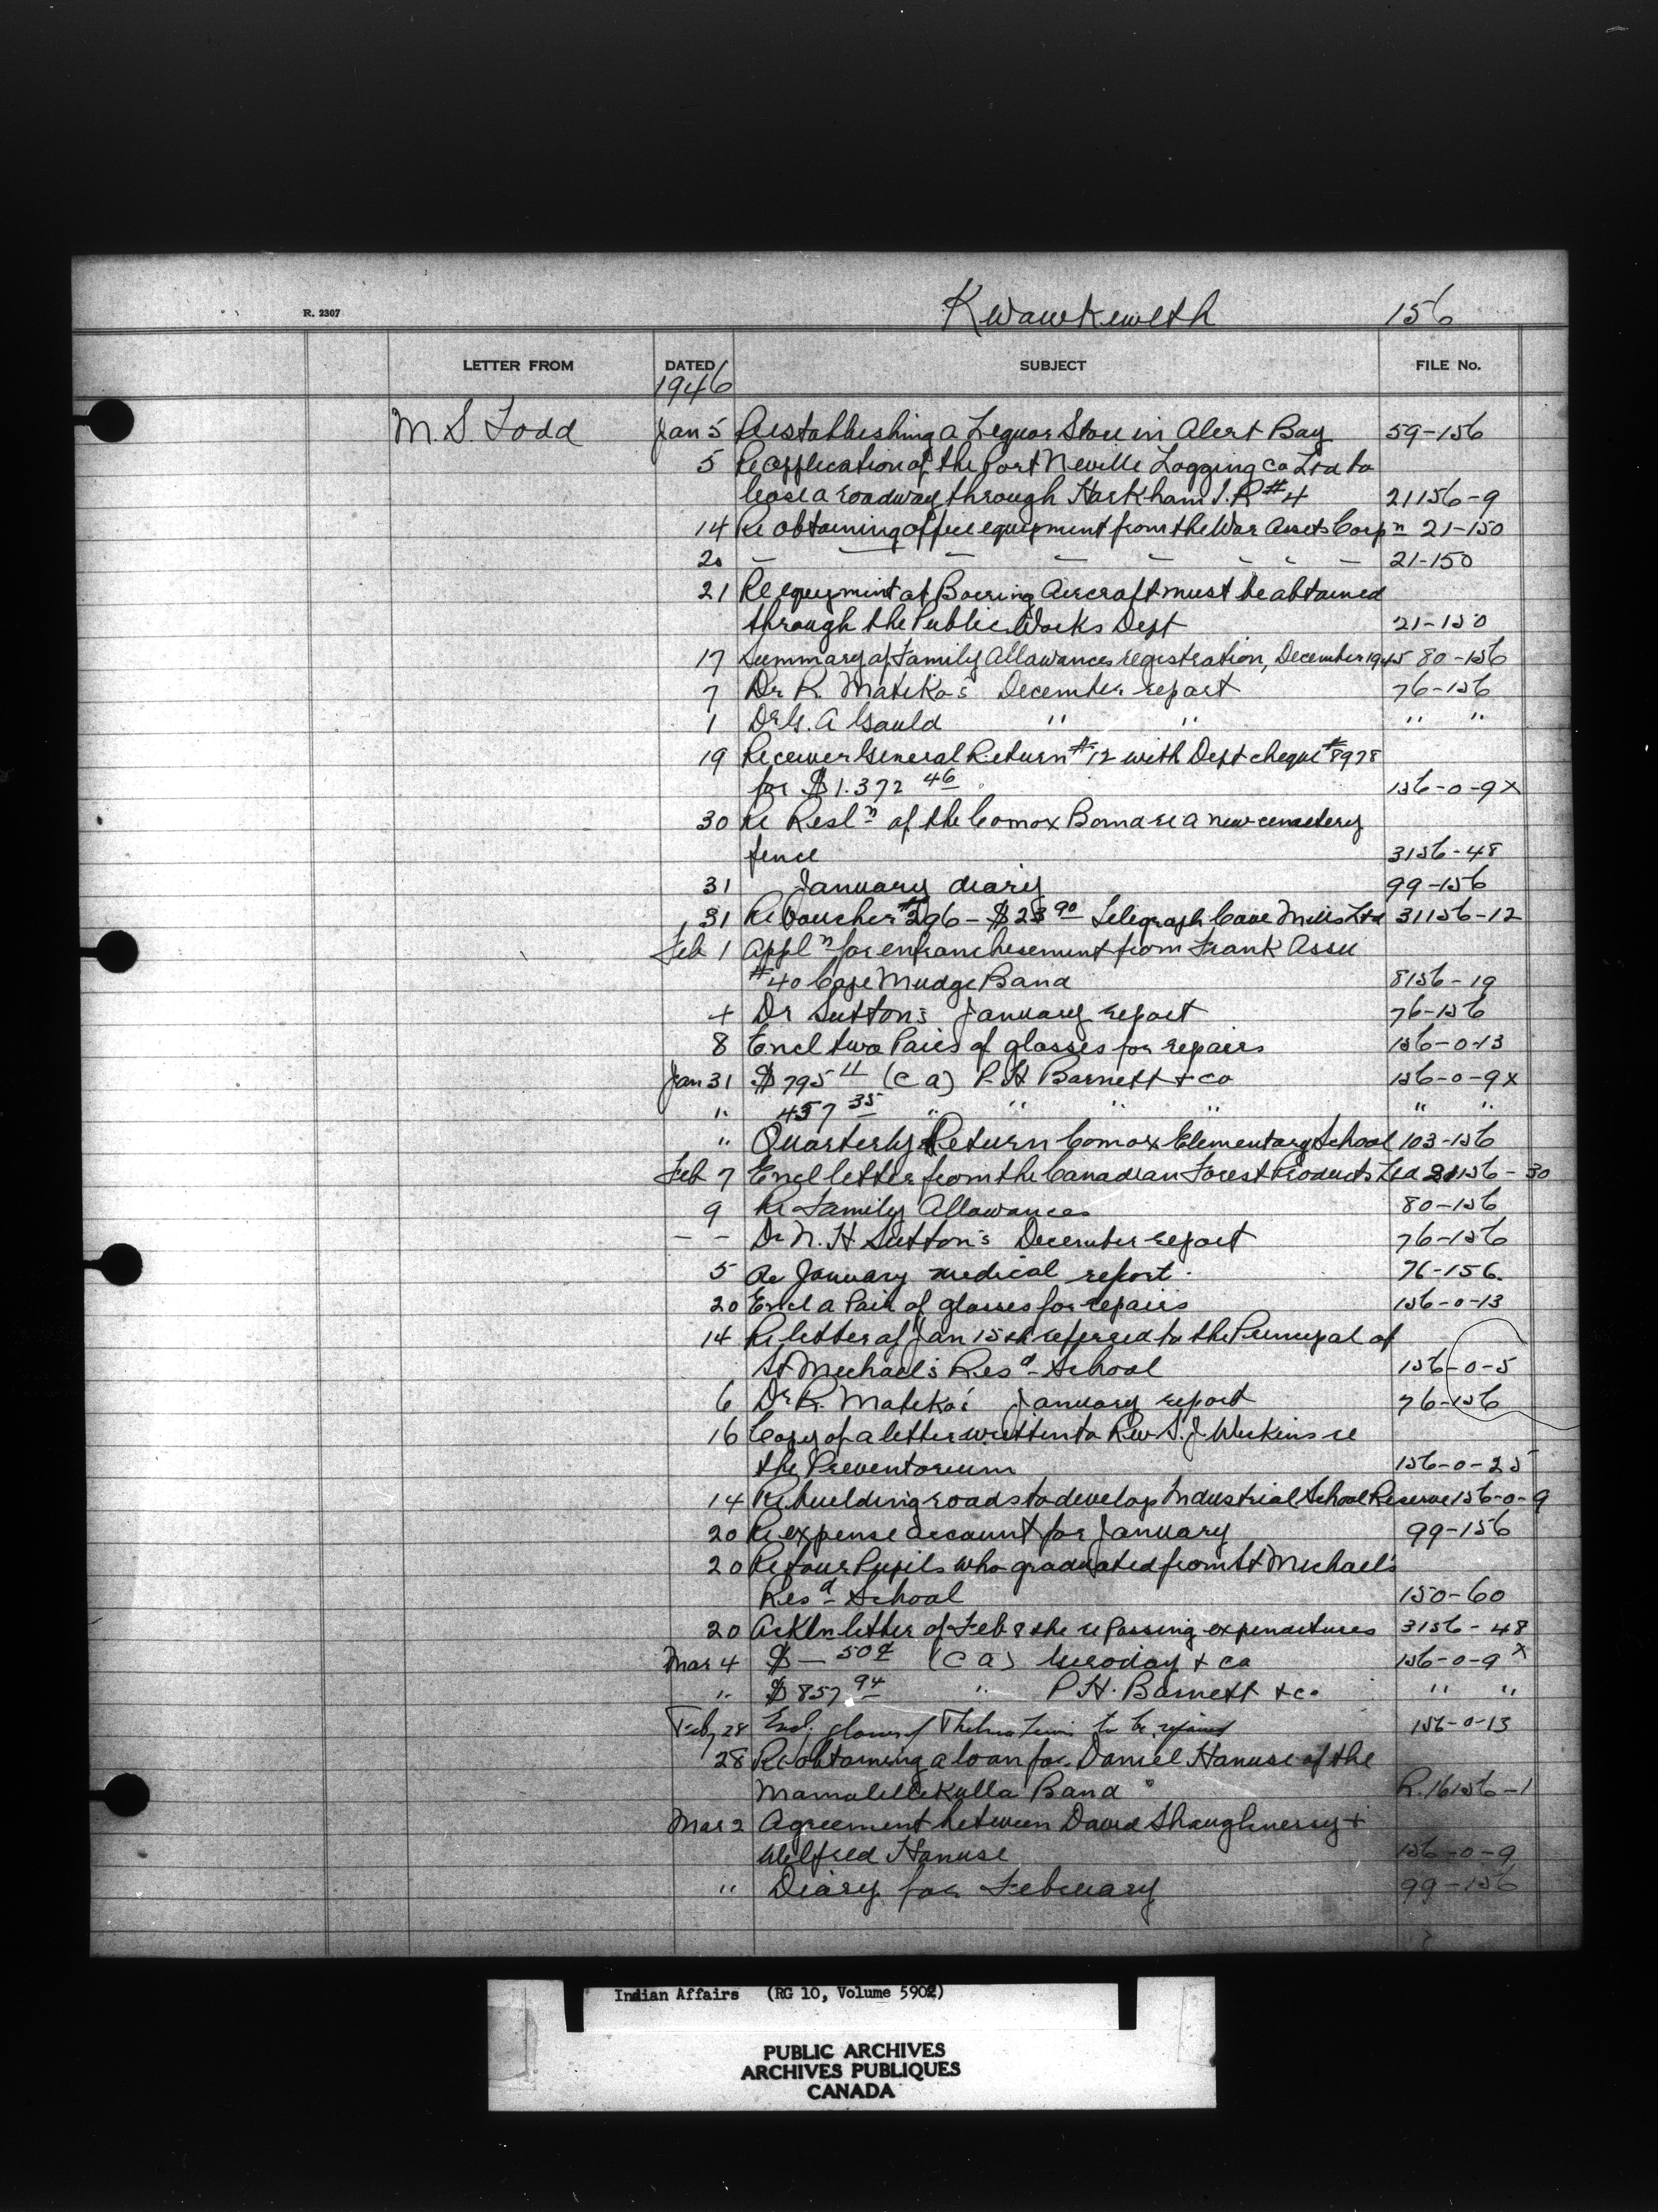 R. 2307
Kwawkewlth 156
LETTER FROM DATED SUBJECT FILE No.
1946
M. S. Todd Jan 5 Re establishing a Liquor Store in Alert Bay 59-156
5 Re application of the Port Neville Logging Co Ltd to
lease a roadway through Harkham I.R #4 21156-9
14 Re obtaining office equipment from the War Assets Corpn 21-150
20 - - - - - - - - 21-150
21 Re equipment at Boeing Aircraft must be obtained
through the Public Works Dept 21-150
17 Summary of Family Allowances registration, December 1945 80-156
7 Dr R. Mateka's December report 76-156
1 Dr G. A Gauld " " " "
19 Receiver General Return #12 with Dept cheque #8978
for $1.372 46 156-0-9x
30 Re Resln of the Comox Band re a new cemetery
fence 3156-48
31 January diary 99-156
31 Re Voucher #296 - $23 90 Telegraph Cove Mills Ltd 31156-12
Feb 1 Appln for enfranchisement from Frank Assu
#40 Cape Mudge Band 8156-19
4 Dr Sutton's January report 76-156
8 Encl two Pairs of glasses for repairs 156-0-13
Jan 31 $795 11 (C A) P. H Barnett & Co 156-0-9x
" 457 35 " " " " " "
" Quarterly Return Comox Elementary School 103-156
Feb 7 Encl letter from the Canadian Forest Products Ltd 21156-30
9 Re Family Allowances 80-156
- - Dr N. H. Sutton's December report 76-156
5 Re January medical report. 76-156.
20 Encl a Pair of glasses for repairs 156-0-13
14 Re letter of Jan 15th referred to the Principal of
St Michael's Resd School 156-0-5
6 Dr R. Mateka's January report 76-156
16 Copy of a letter written to Rev S. J. Wickins re
the Preventorium 156-0-25
14 Re building roads to develop Industrial School Reserve 156-0-9
20 Re expense account for January 99-156
20 Re four Pupils who graduated from St Michael's
Resd School 150-60
20 Ackln letter of Feb 8 the re passing expenditures 3156-48
Mar 4 $ - 50¢ (C A) & Co 156-0-9x
" $857 94 " P. H. Barnett & Co " "
Feb 28 Encl. glasses of Thelma to be repaired 156-0-13
28 Re obtaining a loan for Daniel Hanuse of the
Mamalillikulla Band R.16156-1
Mar 2 Agreement between David Shaughnessy &
Wilfred Hanuse 156-0-9
" Diary for February 99-156
Indian Affairs (RG 10, Volume 5902)
PUBLIC ARCHIVES
ARCHIVES PUBLIQUES
CANADA